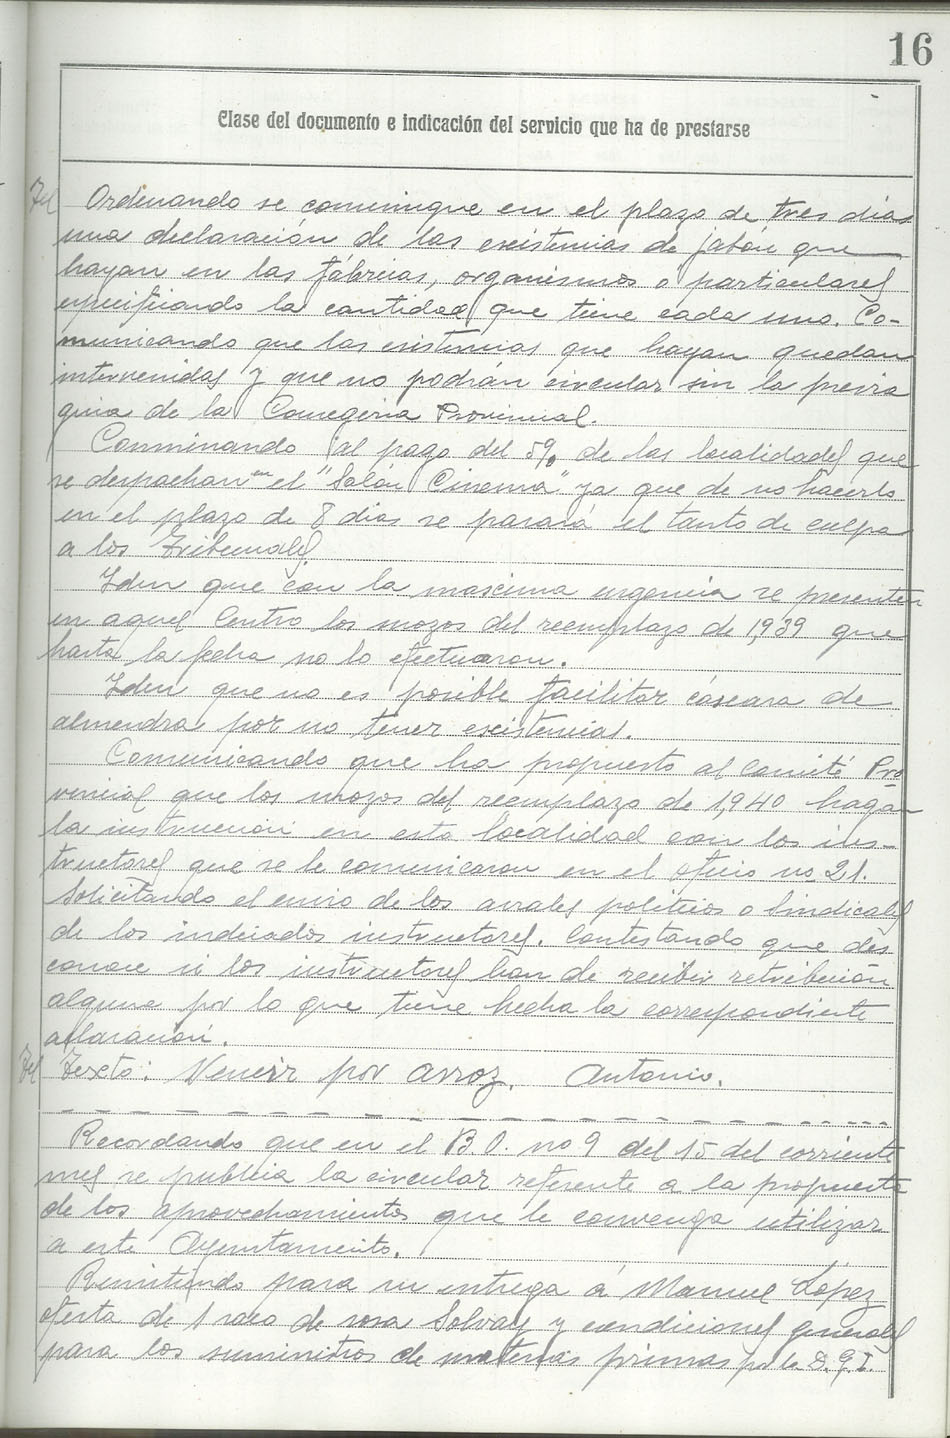 16
Clase del documento e indicación del servicio que ha de prestarse
Tel Ordenando se comunique en el plazo de tres dias
una declaración de las existencias de jabón que
hayan en las fábricas, organismos o particulares
especificando la cantidad que tiene cada uno. Co-
municando que las existencias que hayan quedan
intervenidas y que no podrán circular sin la previa
guia de la Consegeria Provincial.
Conminando al pago del 5% de las localidades que
se despachan en el "Salón Cinema" ya que de no hacerlo
en el plazo de 8 dias se pasará el tanto de culpa
a los Tribunales.
Iden que con la maxima urgencia se presenten
en aquel Centro los mozos del reemplazo de 1,939 que
hasta la fecha no lo efectuaron.
Iden que no es posible facilitar cáscara de
almendras por no tener existencias.
Comunicando que ha propuesto al Comité Pro
vincial que los mozos del reemplazo de 1,940 hagan
la instrucción en esta localidad con los ins-
tructores que se le comunicaron en el oficio no 21.
Solicitando el envio de los avales politicos o Sindicales
de los indicados instructores. Contestando que des
conoce si los instructores han de recibir retribución
alguna por lo que tiene hecha la correspondiente
aclaración.
Tel Texto: Venir por arroz. Antonio.
Recordando que en el B.O. no 9 del 15 del corriente
mes se publica la circular referente a la propuesta
de los aprovechamientos que le convenga utilizar
a este Ayuntamiento.
Remitiendo para su entrega á Manuel López
oferta de 1 saco de sosa Solvay y condiciones generales
para los suministros de materias primas por la D.G.I.